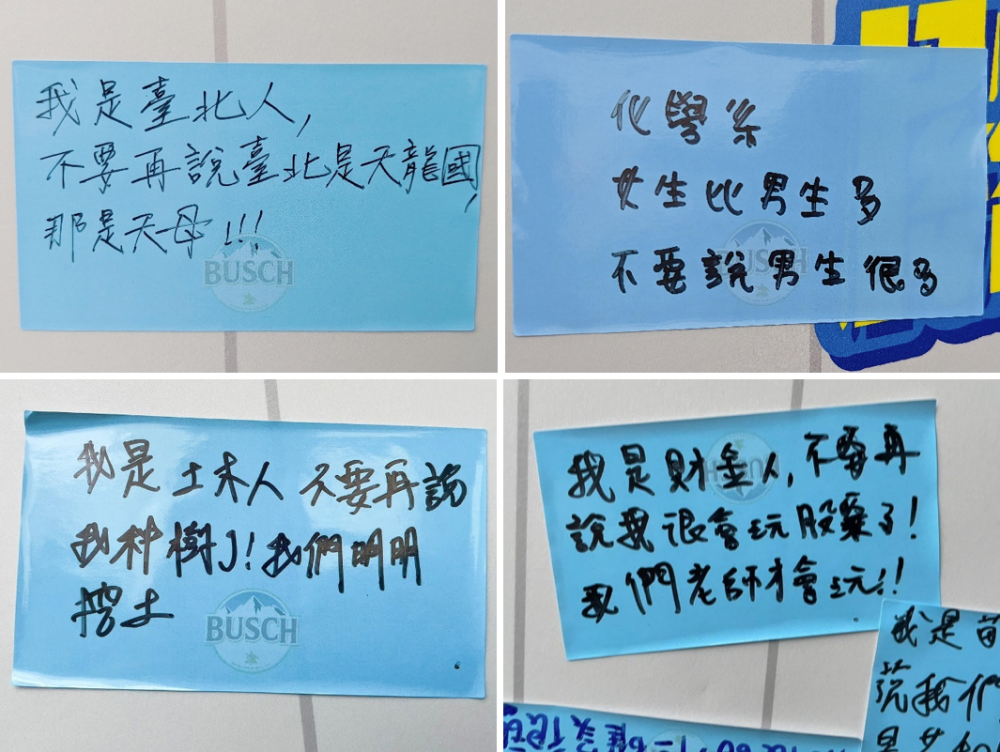 我是臺北人,
不要再說臺北是天龍國,
那是天母!!!
BUSCH
化學系
女生比男生多
不要說男生很多
我是土木人 不要再說
我种樹了!我們明明
挖土
BUSCH
我是財金人,不要再
說我很會玩股票了!
我們老師才會玩!!
我是
說我們
是